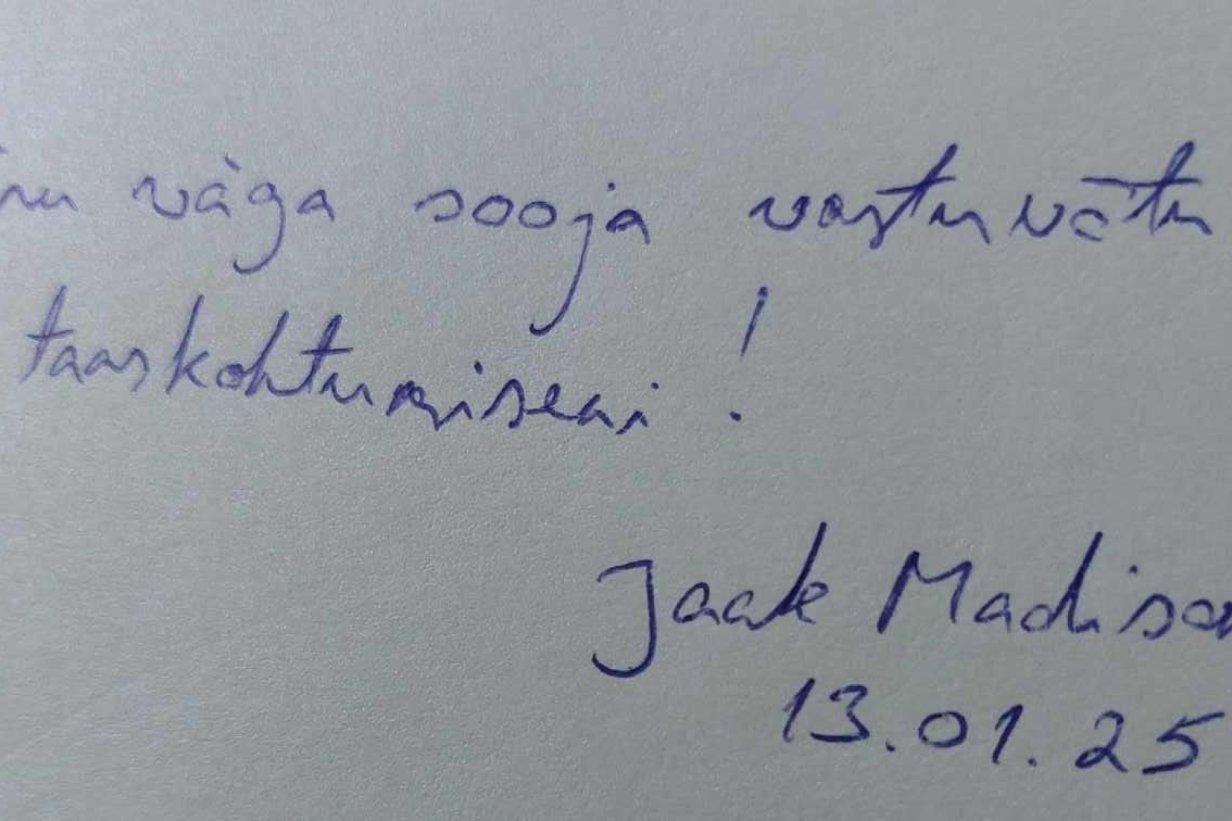 väga sooja vastuvõtu
taaskohtumiseni!
Jaak Madison
13.01.25